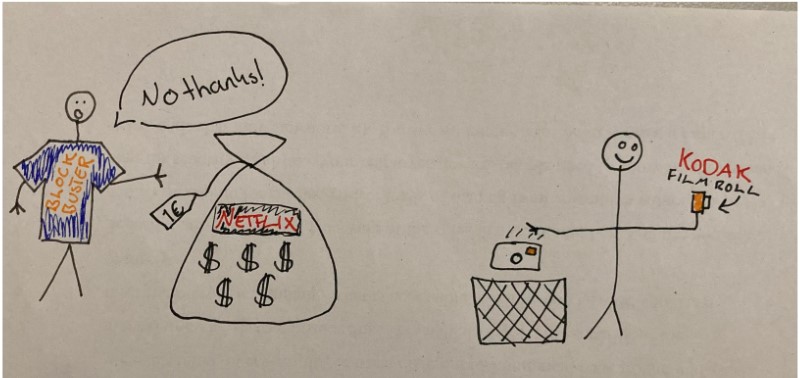 No thanks!
BLOCK
BUSTER
1€
NETFLIX
$ $ $
$ $
KODAK
FILM ROLL